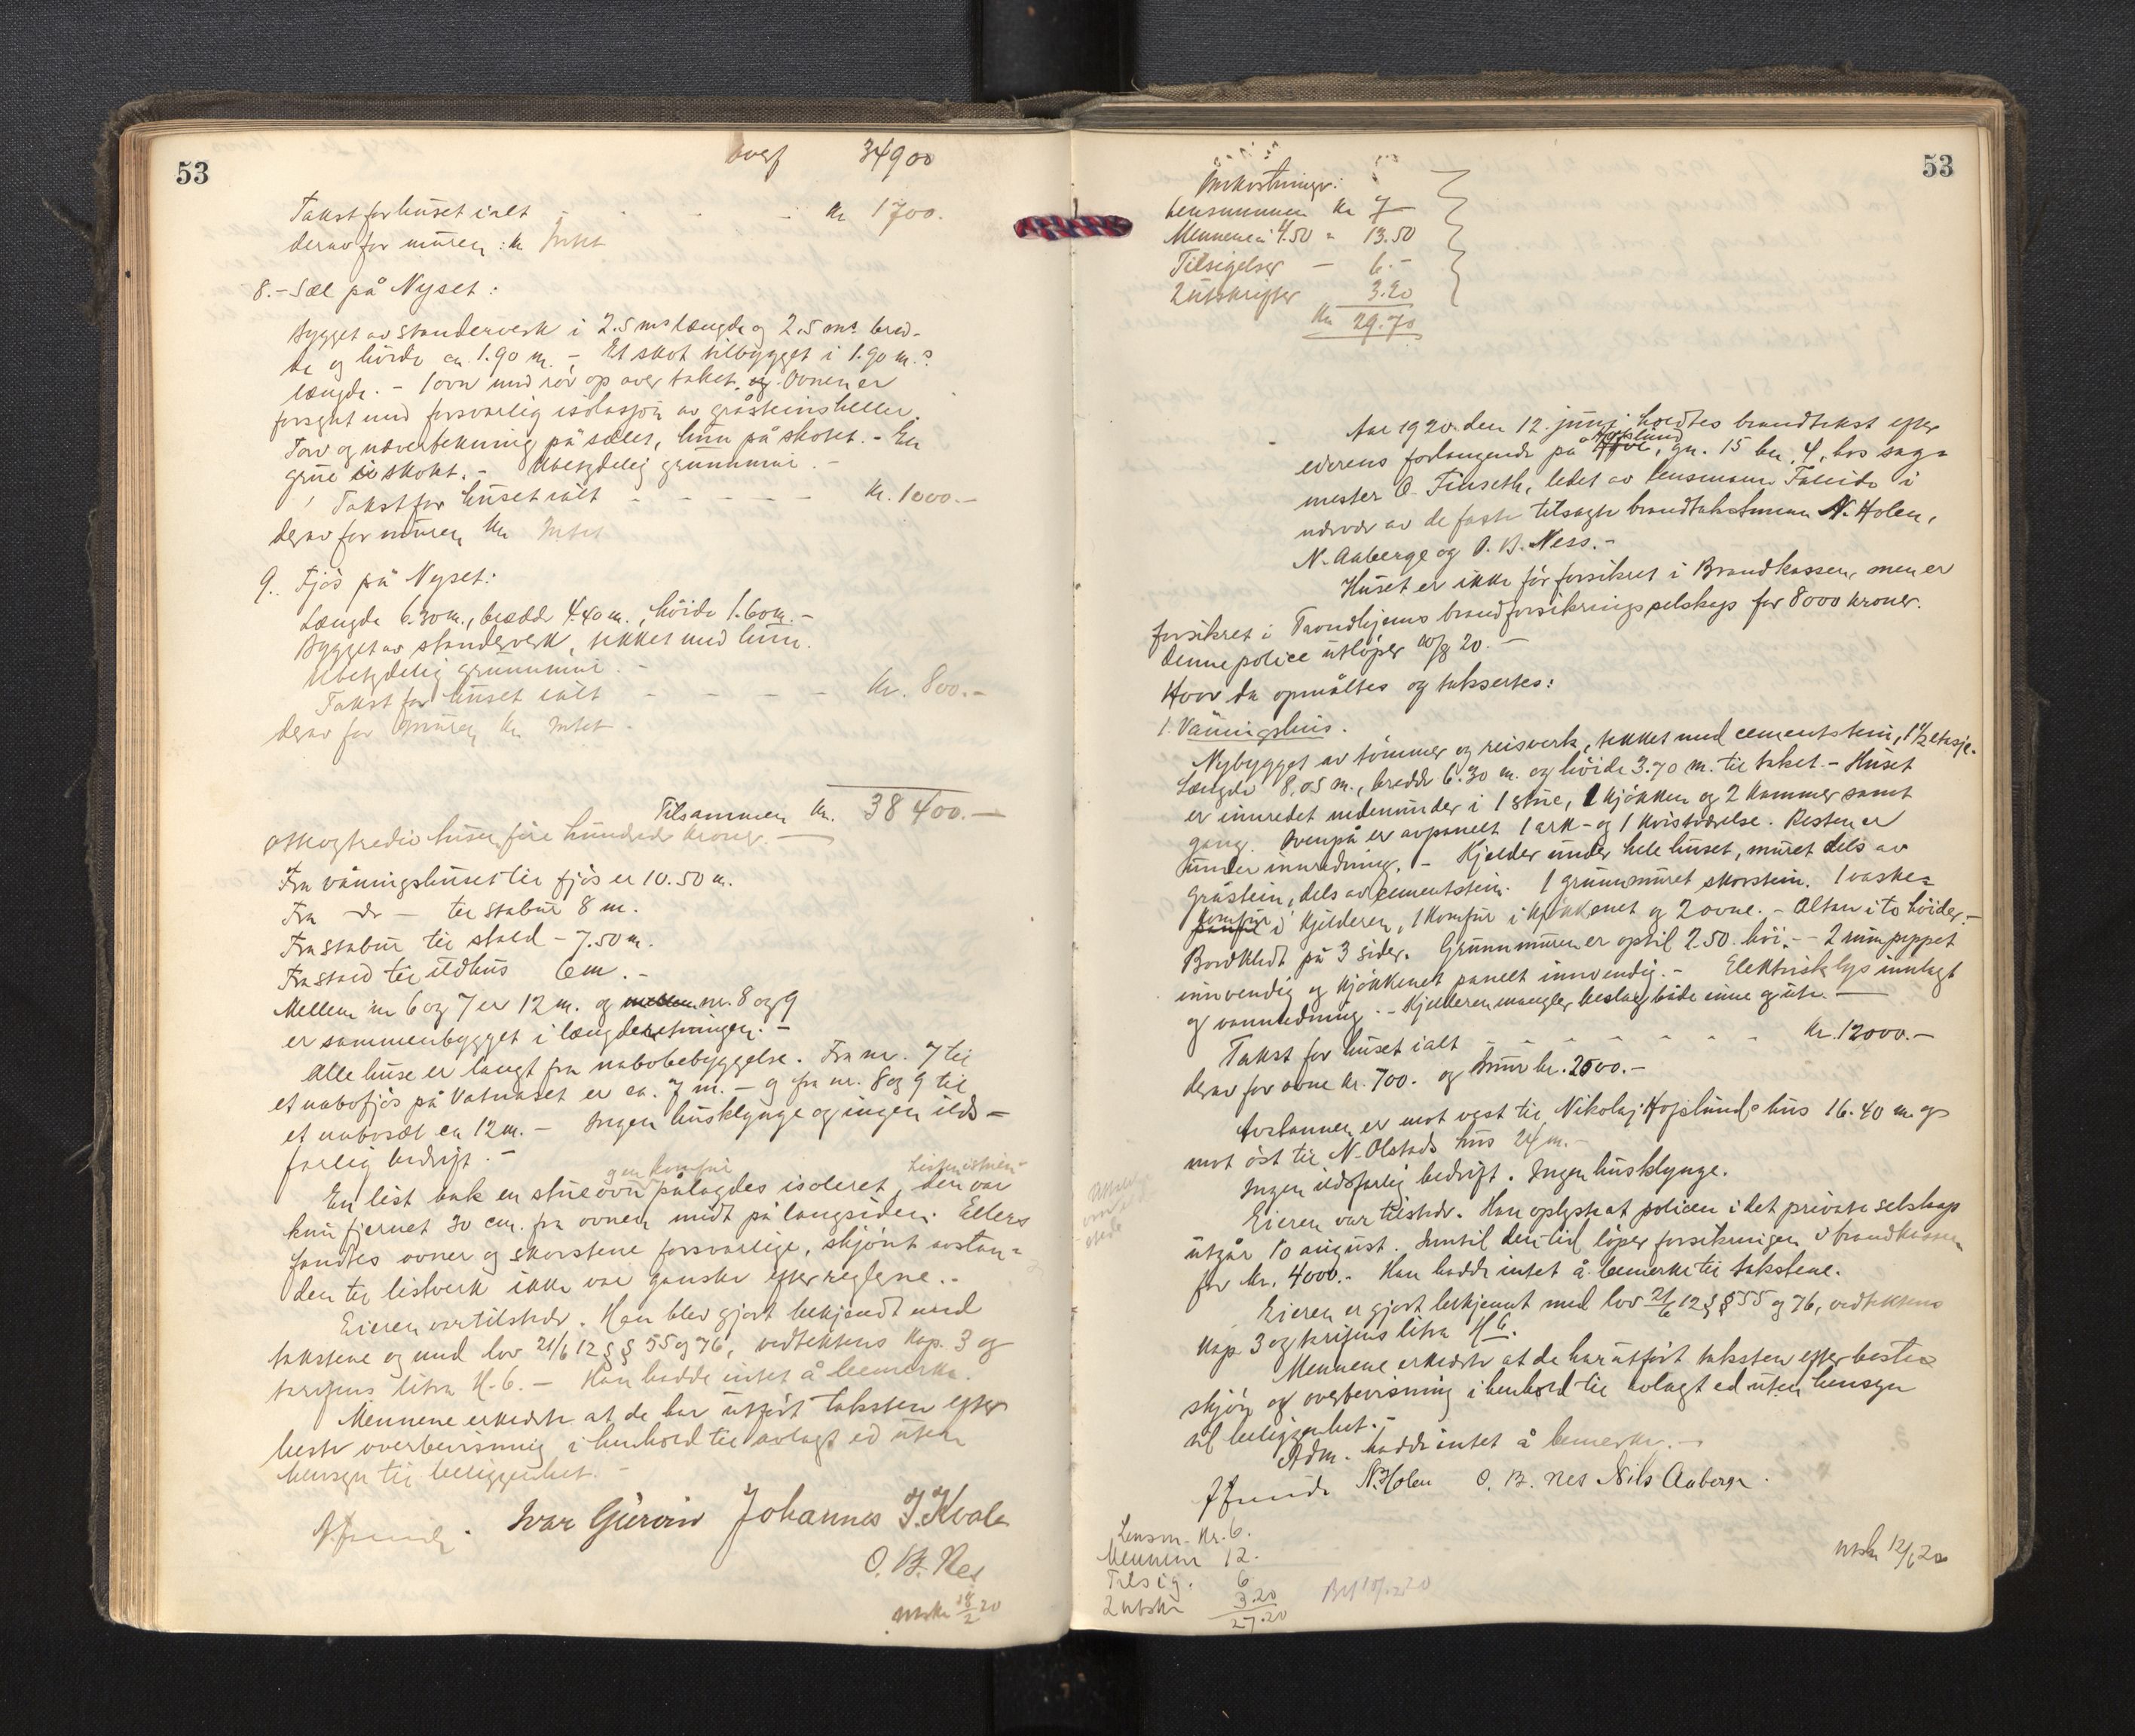 53
Overf 34900
Takst for huset ialt - - - - kr 1700.
derav for muren: kr Intet
8. - Sæl på Nyset:
Bygget av standerverk i 2.5 ms længde og 2.5 ms bred-
de og høide ca. 1.90 m. - Et skot tilbygget i 1.90 m.s
længde. - 1 ovn med rör op over taket. Ovnen er
forsynt med forsvarlig isolasjon av gråsteinsheller.
Torv og nævertekning på sælet, hun på skotet. - En
grue i skotet. - Ubetydelig grunnmur. -
Takst for huset ialt - - - - - Kr. 1000.-
derav for muren Kr Intet
9. Fjös på Nyset:
Længde 6.30 m., bredde 4.40 m., höide 1.60 m. -
Bygget av standerverk, tekket med hun.
Ubetydelig grunnmur. -
Takst for huset ialt - - - - Kr. 800.-
derav for muren kr Intet.
Tilsammen Kr. 38400.-
otteogtredive tusen fire hundrede kroner. -
Fra våningshuset til fjös er 10.50 m.
Fra - do - til stabur 8 m.
Fra stabur til stald - 7.50 m.
Fra stald til ildhus 6 m. -
Mellem nr 6 og 7 er 12 m. og mellem nr. 8 og 9
er sammenbygget i længderetningen. -
Alle huse er langt fra nabobebyggelse. Fra nr. 7 til
et nabofjös på Vatnaset er ca. 7 m. - og fra nr. 8 og 9 til
et nabosæl ca 12 m. - Ingen husklynge og ingen ilds-
farlig bedrift. -
En list bak en stueovn påLagdes isoleret, den var
kun fjernet 30 cm. fra ovnen midt på langsiden. Ellers
fandtes ovner og skorstene forsvarlige, skjönt avstan-
den til listverk ikke var ganske efter reglene. -
Eieren var tilstede. Han blev gjort bekjendt med
takstene og med lov 21/6 12 §§ 55 og 76, vedtektens Kap. 3 og
tariffens litra H-6. - Han hadde intet å bemerke.
Mennene erklærte at de har utfört taksten efter
beste overbevisning i henhold til avlagt ed uten
hensyn til beliggenhet. -
Ivar Gurvin Johannes J. Kvale
O. B. Nes
utskr 28/2 20
53
Omkostninger:
Lensmannen kr 7
Mennene a 4.50 " 13.50
Tilsigelser - 6.-
2 utskrifter 3.20
Kr 29.70
Aar 1920 den 12. juni holdtes brandtakst efter
eierens forlangende på Hofslund, gn. 15 bn. 4, hos sag-
mester O. Finseth, ledet av lensmann Faleide i
nærvær av de faste tilsagte brandtakstmenn N. Holen,
N. Aaberge og O. B. Ness. -
Huset er ikke för forsikret i Brandkassen, men er
forsikret i Trondhjems brandforsikringsselskap for 8000 kroner.
Denne police utlöper 10/8 20. -
Hvor da opmåltes og taksertes:
1. Våningshus.
Nybygget av tömmer og reisverk, tekket med cementstein, 1½ etasje.
Længde 8,05 m., bredde 6.30 m. og höide 3.70 m. til taket. - Huset
er innredet nedenunder i 1 stue, 1 kjökken og 2 kammer samt
gang. Ovenpå er avpanelt 1 ark- og 1 kvistværelse. Resten er
under innredning. - Kjelder under hele huset, muret dels av
gråstein, dels av cementstein. 1 grunnmuret skorstein. 1 vaske-
komfur i kjelderen, 1 komfur i kjökkenet og 2 ovne. - Altan i to höider. -
Bordklædt på 3 sider. Grunnmuren er optil 2.50 höi. - 2 rum pappet
innvendig og kjökkenet panelt innvendig. - Elektrisk lys innlagt
og vannledning. - Kjelderen mangler beslag både inne og ute. -
Takst for huset ialt - - - - - Kr. 12000.-
derav for ovne kr. 700. og mur kr. 2500.-
Avstannen er mot vest til Nikolaj Hofslunds hus 16.40 m. og
mot öst til N. Olstads hus 24 m. -
Ingen ildsfarlig bedrift. Ingen husklynge.
Eieren var tilstede. Han oplyste at policen i det private selskap
utgår 10 august. Inntil den tid löper forsikringen i brandkassen
for kr. 4000.- Han hadde intet å bemerke til takstene.
Eieren er gjort bekjennt med lov 21/6 12 §§ 55 og 76, vedtektens
Kap. 3 og tariffens litra H6.
Mennene erklærte at de har utfört taksten efter beste
skjön og overbevisning i henhold til avlagt ed uten hensyn
til beliggenhet. -
Adm. hadde intet å bemerke. -
N. Holen O. B. Nes Nils Aaberge.
Lensm. Kr. 6.
Mennene 12.
Tilsig. 6
2 utskr 3.20
27.20
utskr 12/6 20